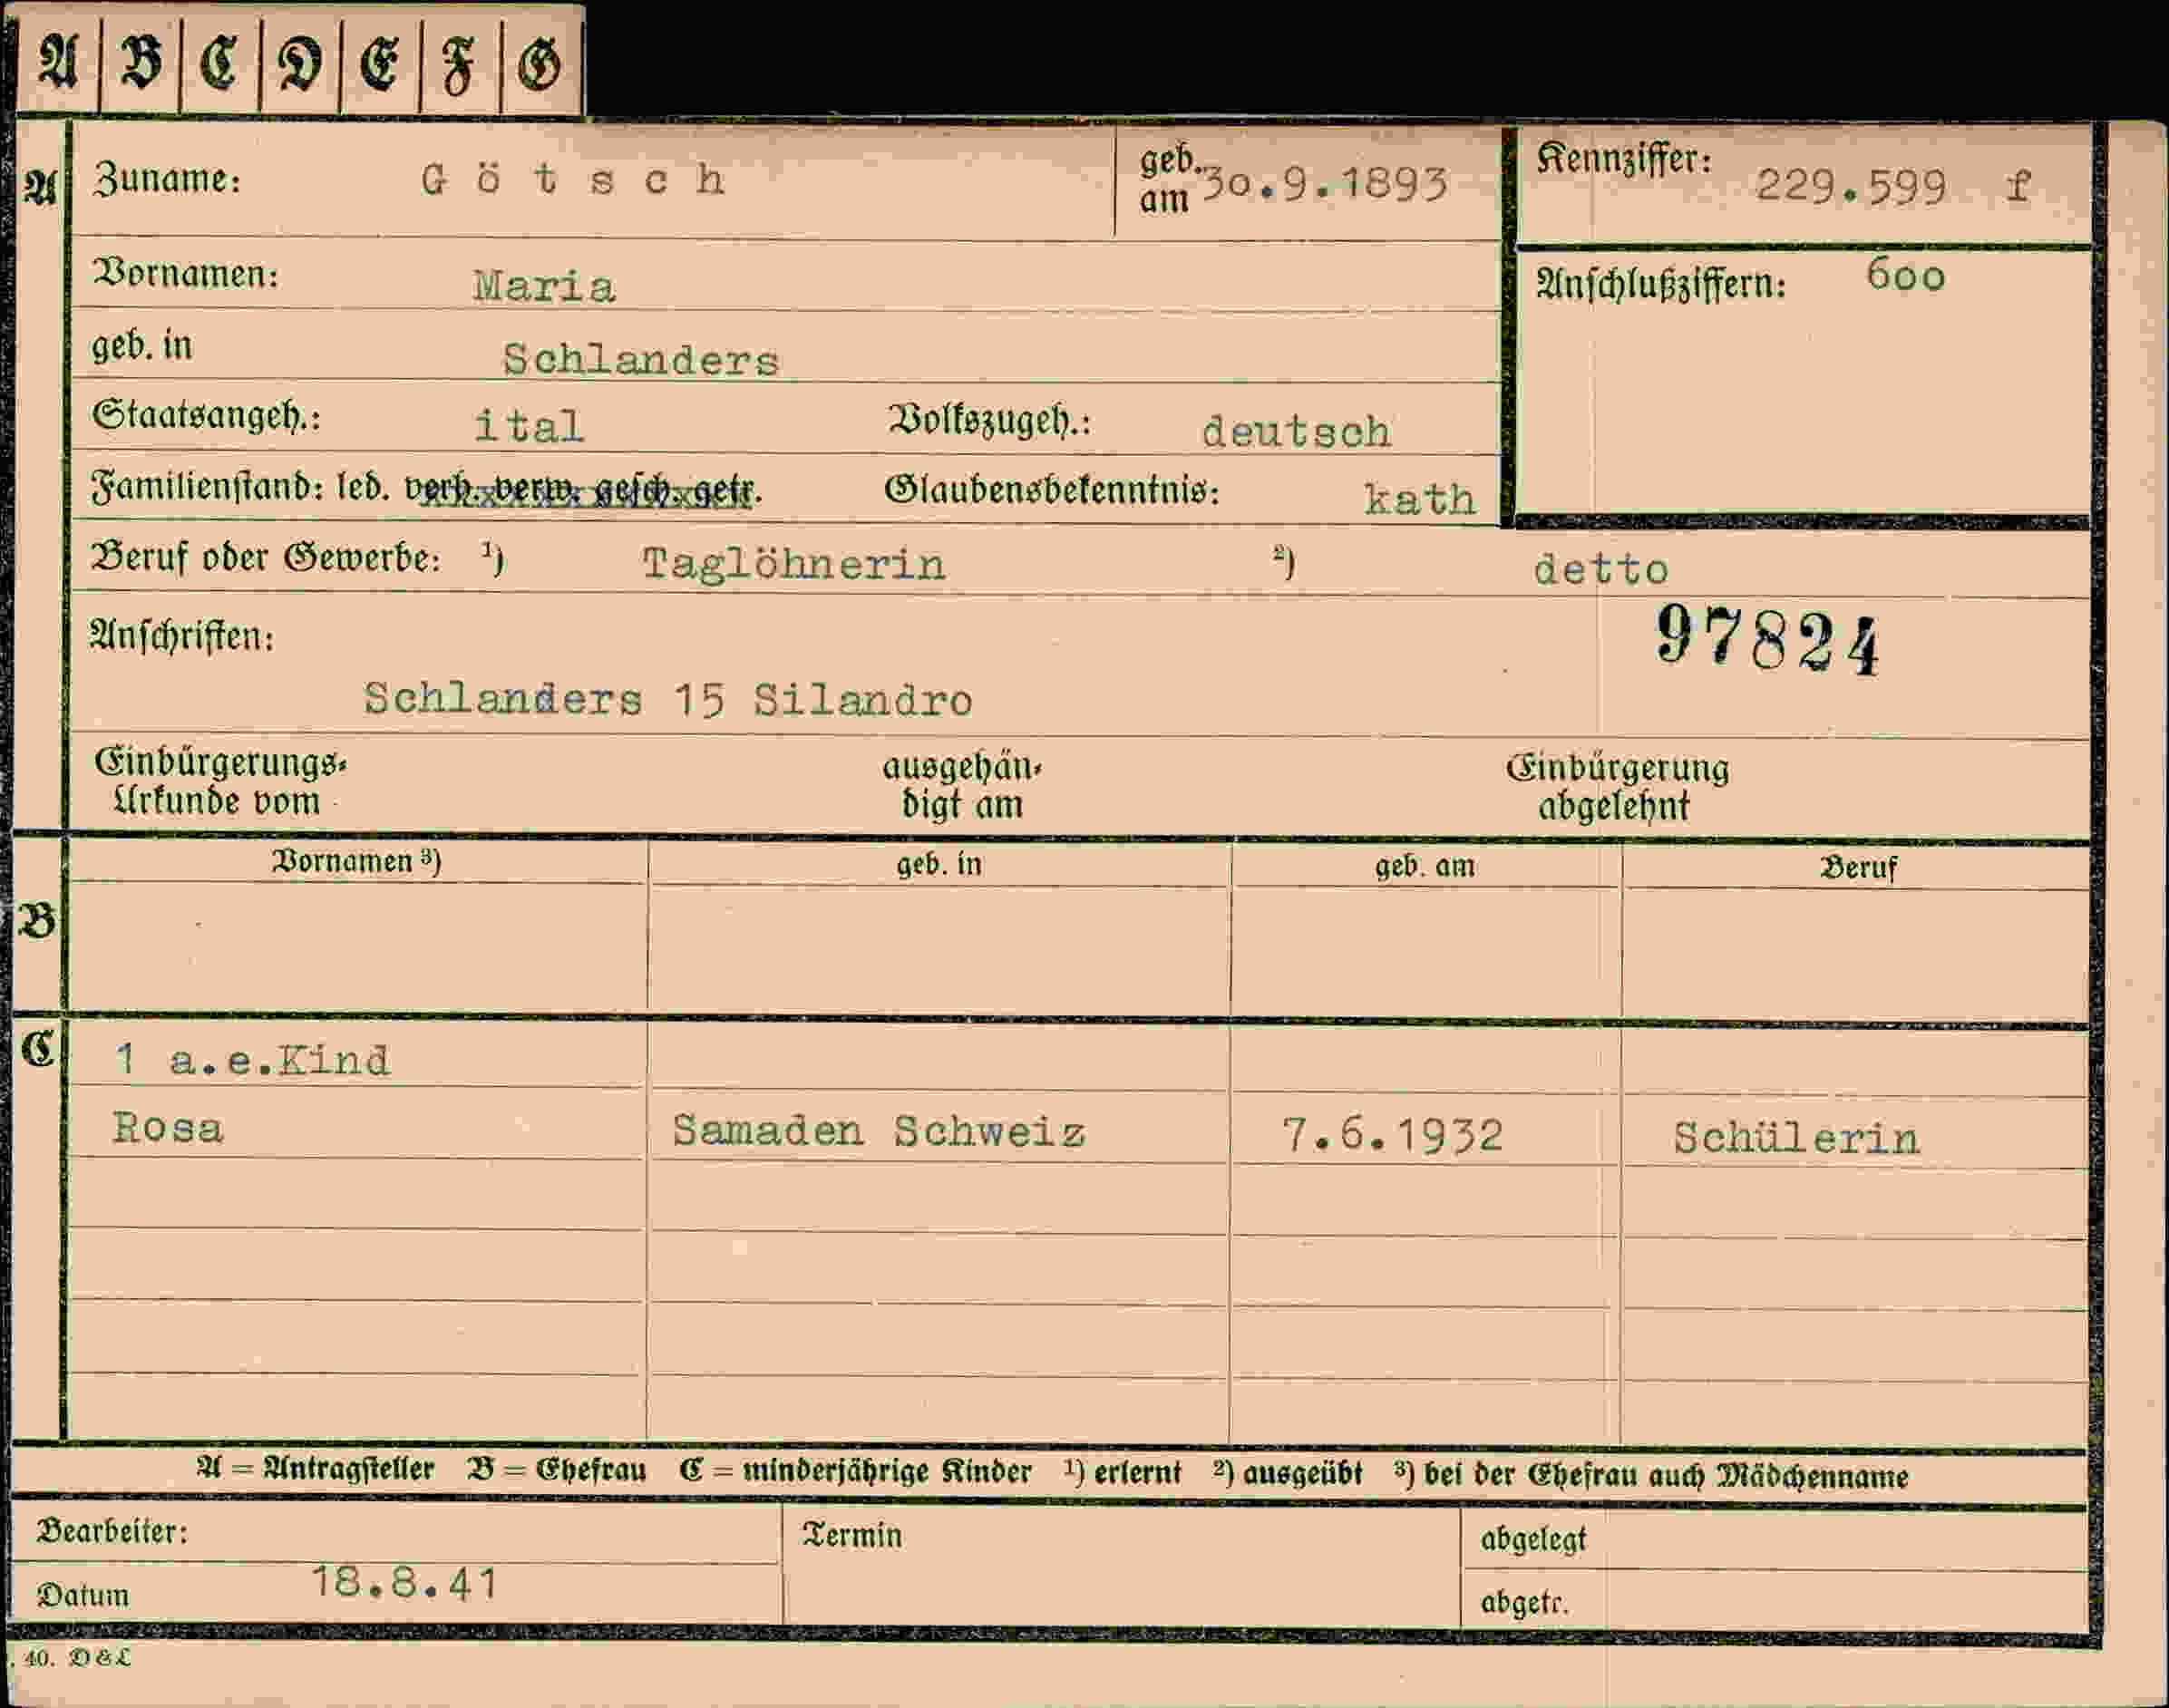 A B C D E F G
A Zuname: Götsch geb. am 30.9.1893 Kennziffer: 229.599 f
Vornamen: Maria Anschlußziffern: 600
geb. in Schlanders
Staatsangeh.: ital Volkszugeh.: deutsch
Familienstand: led. verh. verw. gesch. getr. Glaubensbekenntnis: kath
Beruf oder Gewerbe: ¹) Taglöhnerin ²) detto
Anschriften: 97824
Schlanders 15 Silandro
Einbürgerungs- ausgehän- Einbürgerung
Urkunde vom digt am abgelehnt
Vornamen ³) geb. in geb. am Beruf
B
C 1 a.e.Kind
Rosa Samaden Schweiz 7.6.1932 Schülerin
A = Antragsteller B = Ehefrau C = minderjährige Kinder ¹) erlernt ²) ausgeübt ³) bei der Ehefrau auch Mädchenname
Bearbeiter: Termin abgelegt
Datum 18.8.41 abgetr.
. 40. D & L